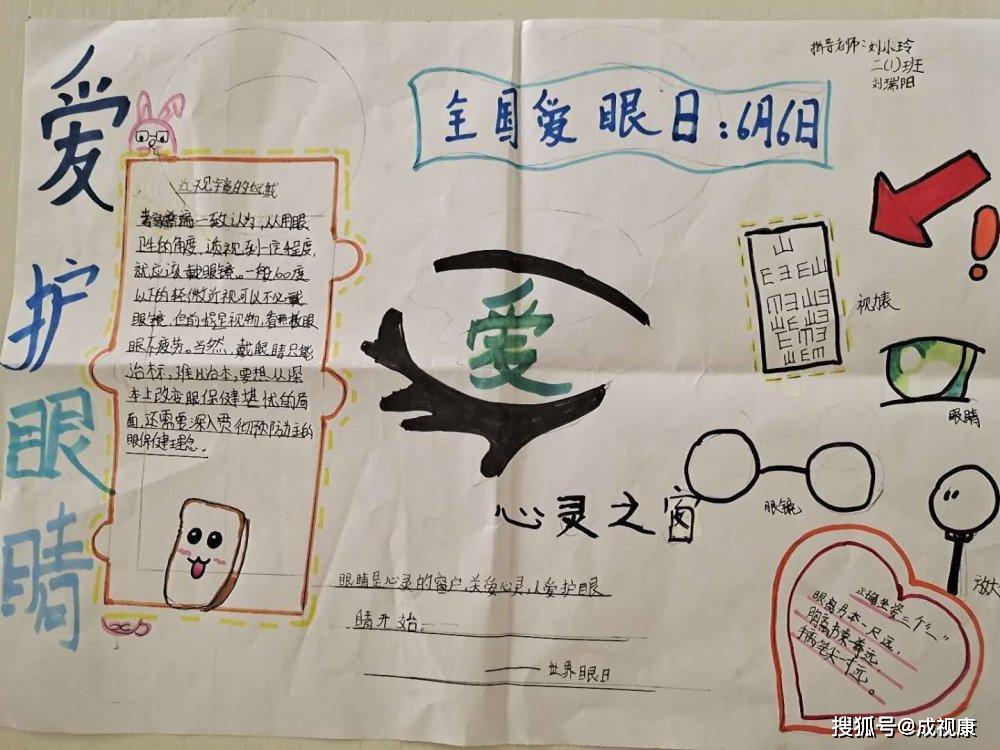 指导老师:刘小玲
二(1)班
刘瑞阳
爱护眼睛
全国爱眼日:6月6日
一致认为,从用眼
卫生的角度,近视到一定程度,
就应该戴眼镜。一般100度
以下的轻微近视可以不必戴
眼镜,但前提是视物,看
眼不疲劳。当然,戴眼睛只能
治标,难以治本,要想从深
本上改变眼保健堪忧的局
面,还需要深入贯彻预防为主的
眼保健理念。
爱
山
E Ǝ E 山
视力表
眼睛
眼镜
放大
心灵之窗
眼睛是心灵的窗户,关爱心灵,从爱护眼
睛开始。
——世界眼日
正确坐姿三个“一”
眼离书本一尺远,
胸离书桌一拳远,
手离笔尖一寸远。
搜狐号@成视康